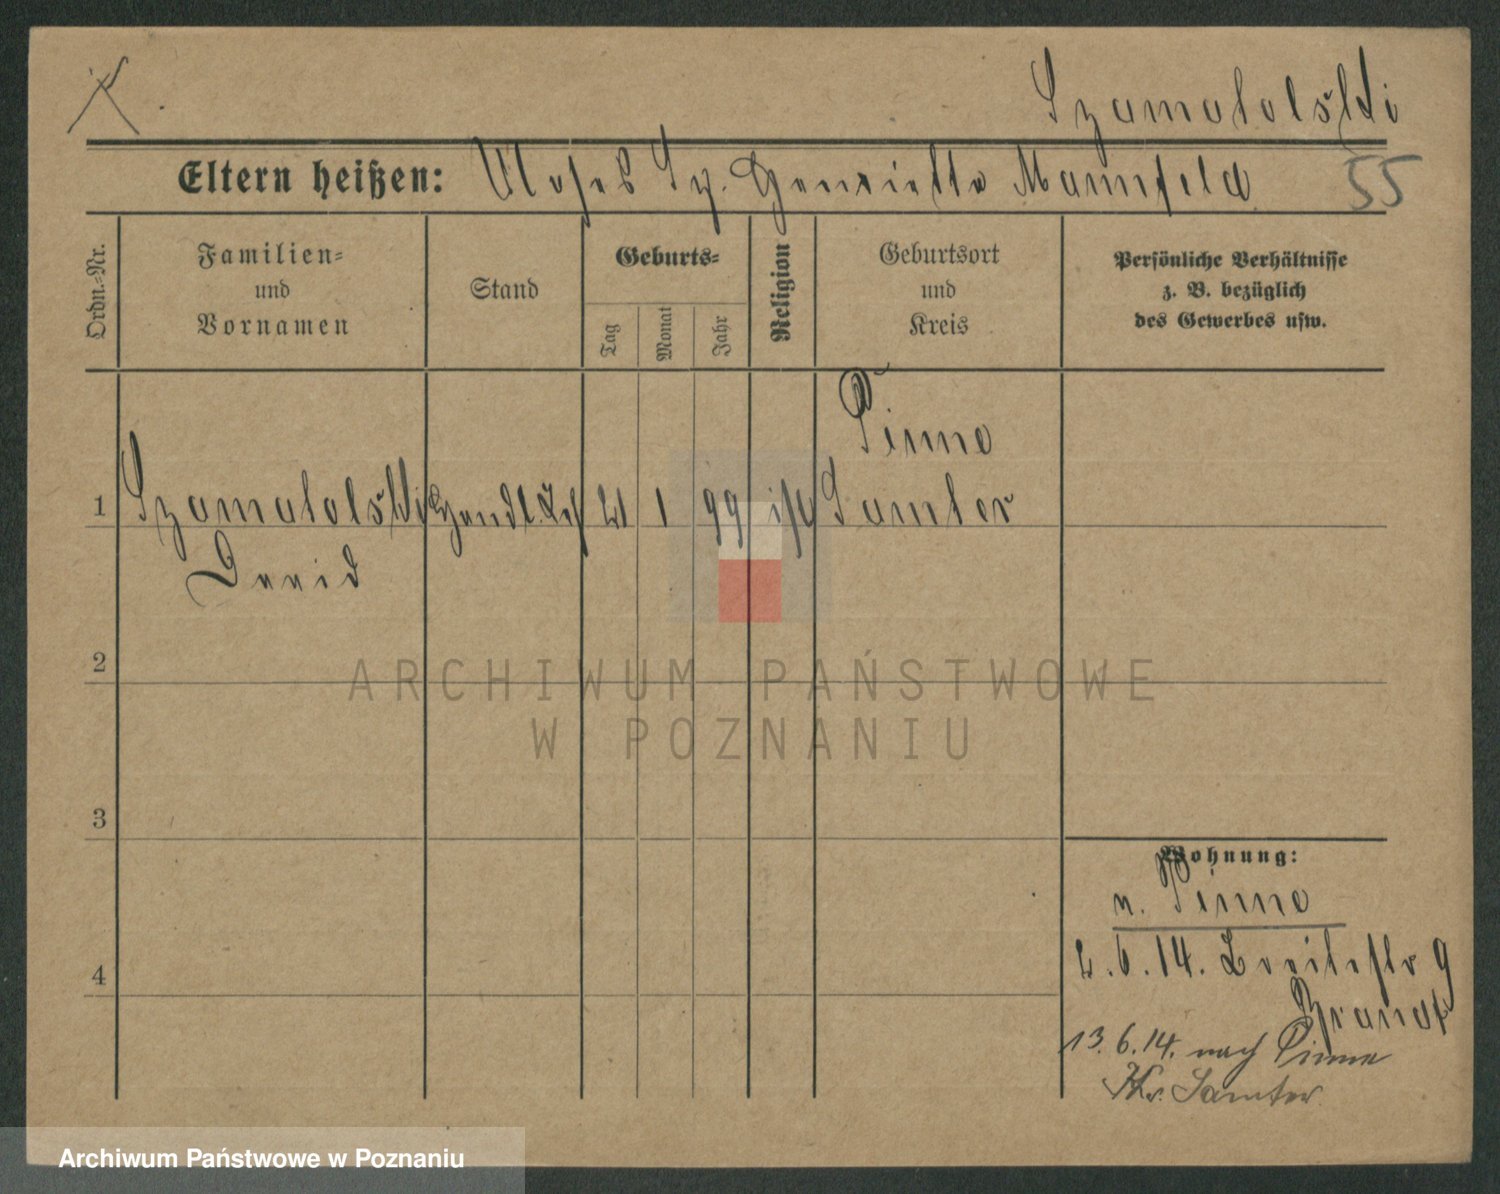 Szamotolski
Eltern heißen: Moses Sz. Henriette Mannfeld 55
Ordn.-Nr.
Familien-
und
Vornamen
Stand
Geburts-
Tag
Monat
Jahr
Religion
Geburtsort
und
Kreis
Persönliche Verhältnisse
z. B. bezüglich
des Gewerbes usw.
Pinne
1 Szamotolski Handl. 1 99 Samter
David
2
ARCHIWUM PAŃSTWOWE
W POZNANIU
3
Wohnung:
n. Pinne
2.6.14. Breitestr 9
4
13.6.14. nach Pinne
Kr. Samter.
Archiwum Państwowe w Poznaniu